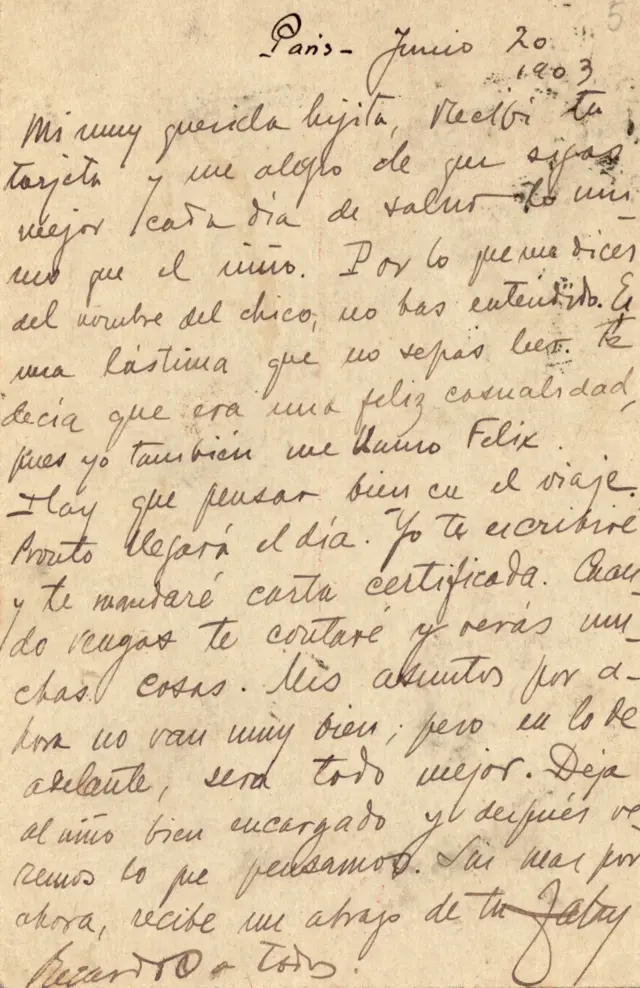 5
Paris - Junio 20
1903
Mi muy querida hijita, Recibí tu
tarjeta y me alegro de que sigas
mejor cada día de salud lo mis-
mo que el niño. Por lo que me dices
del nombre del chico, no has entendido. Es
una lástima que no sepas leer. Te
decía que era una feliz casualidad,
pues yo también me llamo Felix.
Hay que pensar bien en el viaje.
Pronto llegará el día. Yo te escribiré
y te mandaré carta certificada. Cuan-
do vengas te contaré y verás mu-
chas cosas. Mis asuntos por a-
hora no van muy bien; pero en lo de
adelante, será todo mejor. Deja
al niño bien encargado y después ve-
remos lo que pensamos. Sin mas por
ahora, recibe un abrazo de tu
Recuerdo a todos.